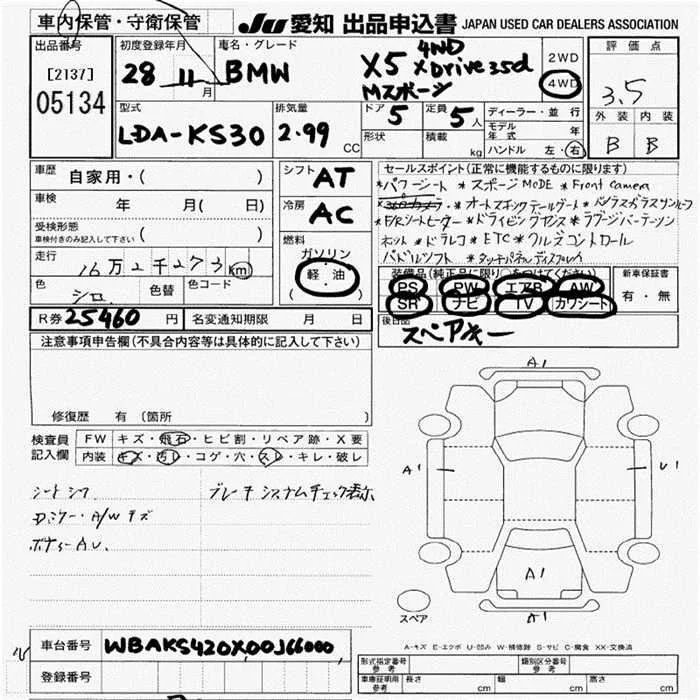 車内保管・守衛保管 JU 愛知 出品申込書 JAPAN USED CAR DEALERS ASSOCIATION
出品番号 [2137] 05134
初度登録年月 28 11 月
車名・グレード BMW X5 4WD xDrive35d Mスポーツ
2WD 4WD
評価点 3.5
外装 内装
B B
型式 LDA-KS30
排気量 2.99 CC
ドア 5 形状
定員 5 人 積載 kg
ディーラー・並行
モデル年式 年
ハンドル 左・右
車歴 自家用・( )
車検 年 月( 日)
受検形態 車検付きのみ記入して下さい ( )
走行 16万2千273 km
色 シロ 色替 色コード
シフト AT
冷房 AC
燃料 ガソリン・軽油 ( )
セールスポイント(正常に機能するものに限ります)
*パワーシート *スポーツMODE *Front camera
*360°カメラ・*オートマチックテールゲート *パノラマガラスサンルーフ
*F/Rシートヒーター *ドライビング
ホット *ドラレコ *ETC *クルーズコントロール
パドルシフト *タッチパネルディスプレイ
装備品(純正品に限り○をつけてください)
PS PW エアB AW
SR ナビ TV カワシート
新車保証書 有・無
R券 25460 円 名変通知期限 月 日
後日品 スペアキー
注意事項申告欄(不具合内容等は具体的に記入して下さい)
修復歴 有(箇所 )
検査員記入欄 FW キズ・飛石・ヒビ割・リペア跡・X要
内装 キズ・汚レ・コゲ・穴・スレ・キレ・破レ
シートシワ ブレーキシステムチェック表示
Dミラー・A/Wキズ
ボディーAU.
A1
A1 U1
A1
A1
スペア
A-キズ E-エクボ U-凹み W-補修跡 S-サビ C-腐食 XX-交換済
車台番号 WBAKS420X00J66000
登録番号
型式指定番号 参考 類別区分番号 参考
車庫証明用 参考 長さ cm 幅 cm 高さ cm